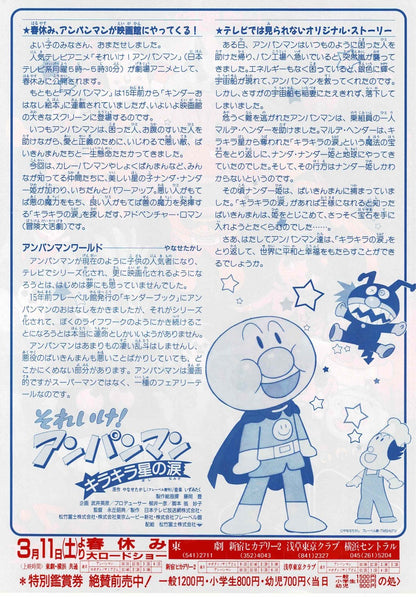 ★春休み、アンパンマンが映画館にやってくる！
よい子のみなさん、おまたせしました。
人気テレビアニメ「それいけ！アンパンマン」(日本
テレビ系月曜5時〜5時30分)が劇場アニメとして、
春休みに公開されます。
もともと「アンパンマン」は15年前から「キンダーお
はなし絵本」に連載されていましたが、いよいよ映画館
の大きなスクリーンに登場するのです。
いつもアンパンマンは、困った人、お腹のすいた人を
助けながら、愛と正義のために、いじわるで悪い敵、ば
いきんまんたちと一生懸命たたかってきました。
今回は、カレーパンマンやしょくぱんまんなど、みん
なが知ってる仲間たちに、美しい星の子ナンダ・ナンダ
ー姫が加わり、いちだんとパワーアップ。悪い人がもて
ば悪の魔力をもち、良い人がもてば善の魔力を発揮す
る「キラキラの涙」を探しだす、アドベンチャー・ロマン
(冒険大活劇)です。
アンパンマンワールド やなせたかし
アンパンマンが現在のように子供の人気者になり、
テレビでシリーズ化され、更に映画化されるようにな
ろうとは、はじめは夢にも思っていませんでした。
15年前フレーベル館発行の「キンダーブック」にアンパ
ンマンのおはなしをかきましたが、それがシリーズ
化されて、ぼくのライフワークのようにかき続けるこ
とになろうとは本当に運命としかいいようがありません。
アンパンマンはあまりもの凄い乱斗はしませんし、
悪役のばいきんまんも悪いことばかりしていても、ど
こかにくめない部分があります。アンパンマンは漫画
的ですがスーパーマンではなく、一種のフェアリイテー
ルなのです。
★テレビでは見られないオリジナル・ストーリー
ある日、アンパンマンはいつものように困った人を
助けた帰り、パン工場へ急いでいると突然嵐が襲って
きました。エネルギーもなく困っていると、銀色に輝く
宇宙船が現れて、アンパンマンを救ってくれました。し
かし、さすがの宇宙船も稲妻にたえきれず、落下して
しまいました。
危うく難を逃がれたアンパンマンは、乗組員の一人
マルデ・ヘンダーを助けました。マルデ・ヘンダーは、キ
ラキラ星から奪われた「キラキラの涙」という魔法の
宝石をとり返しに、ナンダ・ナンダー姫と地球にやってき
ていたのでした。そして、その行方はナンダー姫しかわ
からないというのです。
その頃ナンダー姫は、ばいきんまんに捕まっていま
した。「キラキラの涙」があれば王様になれると知った
ばいきんまんは、姫をとじこめて、さっそく宝石を手に
入れようとたくらむのでした…。
さあ、はたしてアンパンマン達は、「キラキラの涙」を
とり返して、世界に平和と幸福をもたらすことができ
るでしょうか。
それいけ！
アンパンマン
キラキラ星の涙
3月11日(土)より 春休み 大ロードショー
東劇 (541)2711
新宿ヒカデリー2 (352)4043
浅草東京クラブ (841)2327
横浜セントラル 045(261)5204
★特別鑑賞券 絶賛前売中！ 一般1200円・小学生800円・幼児700円